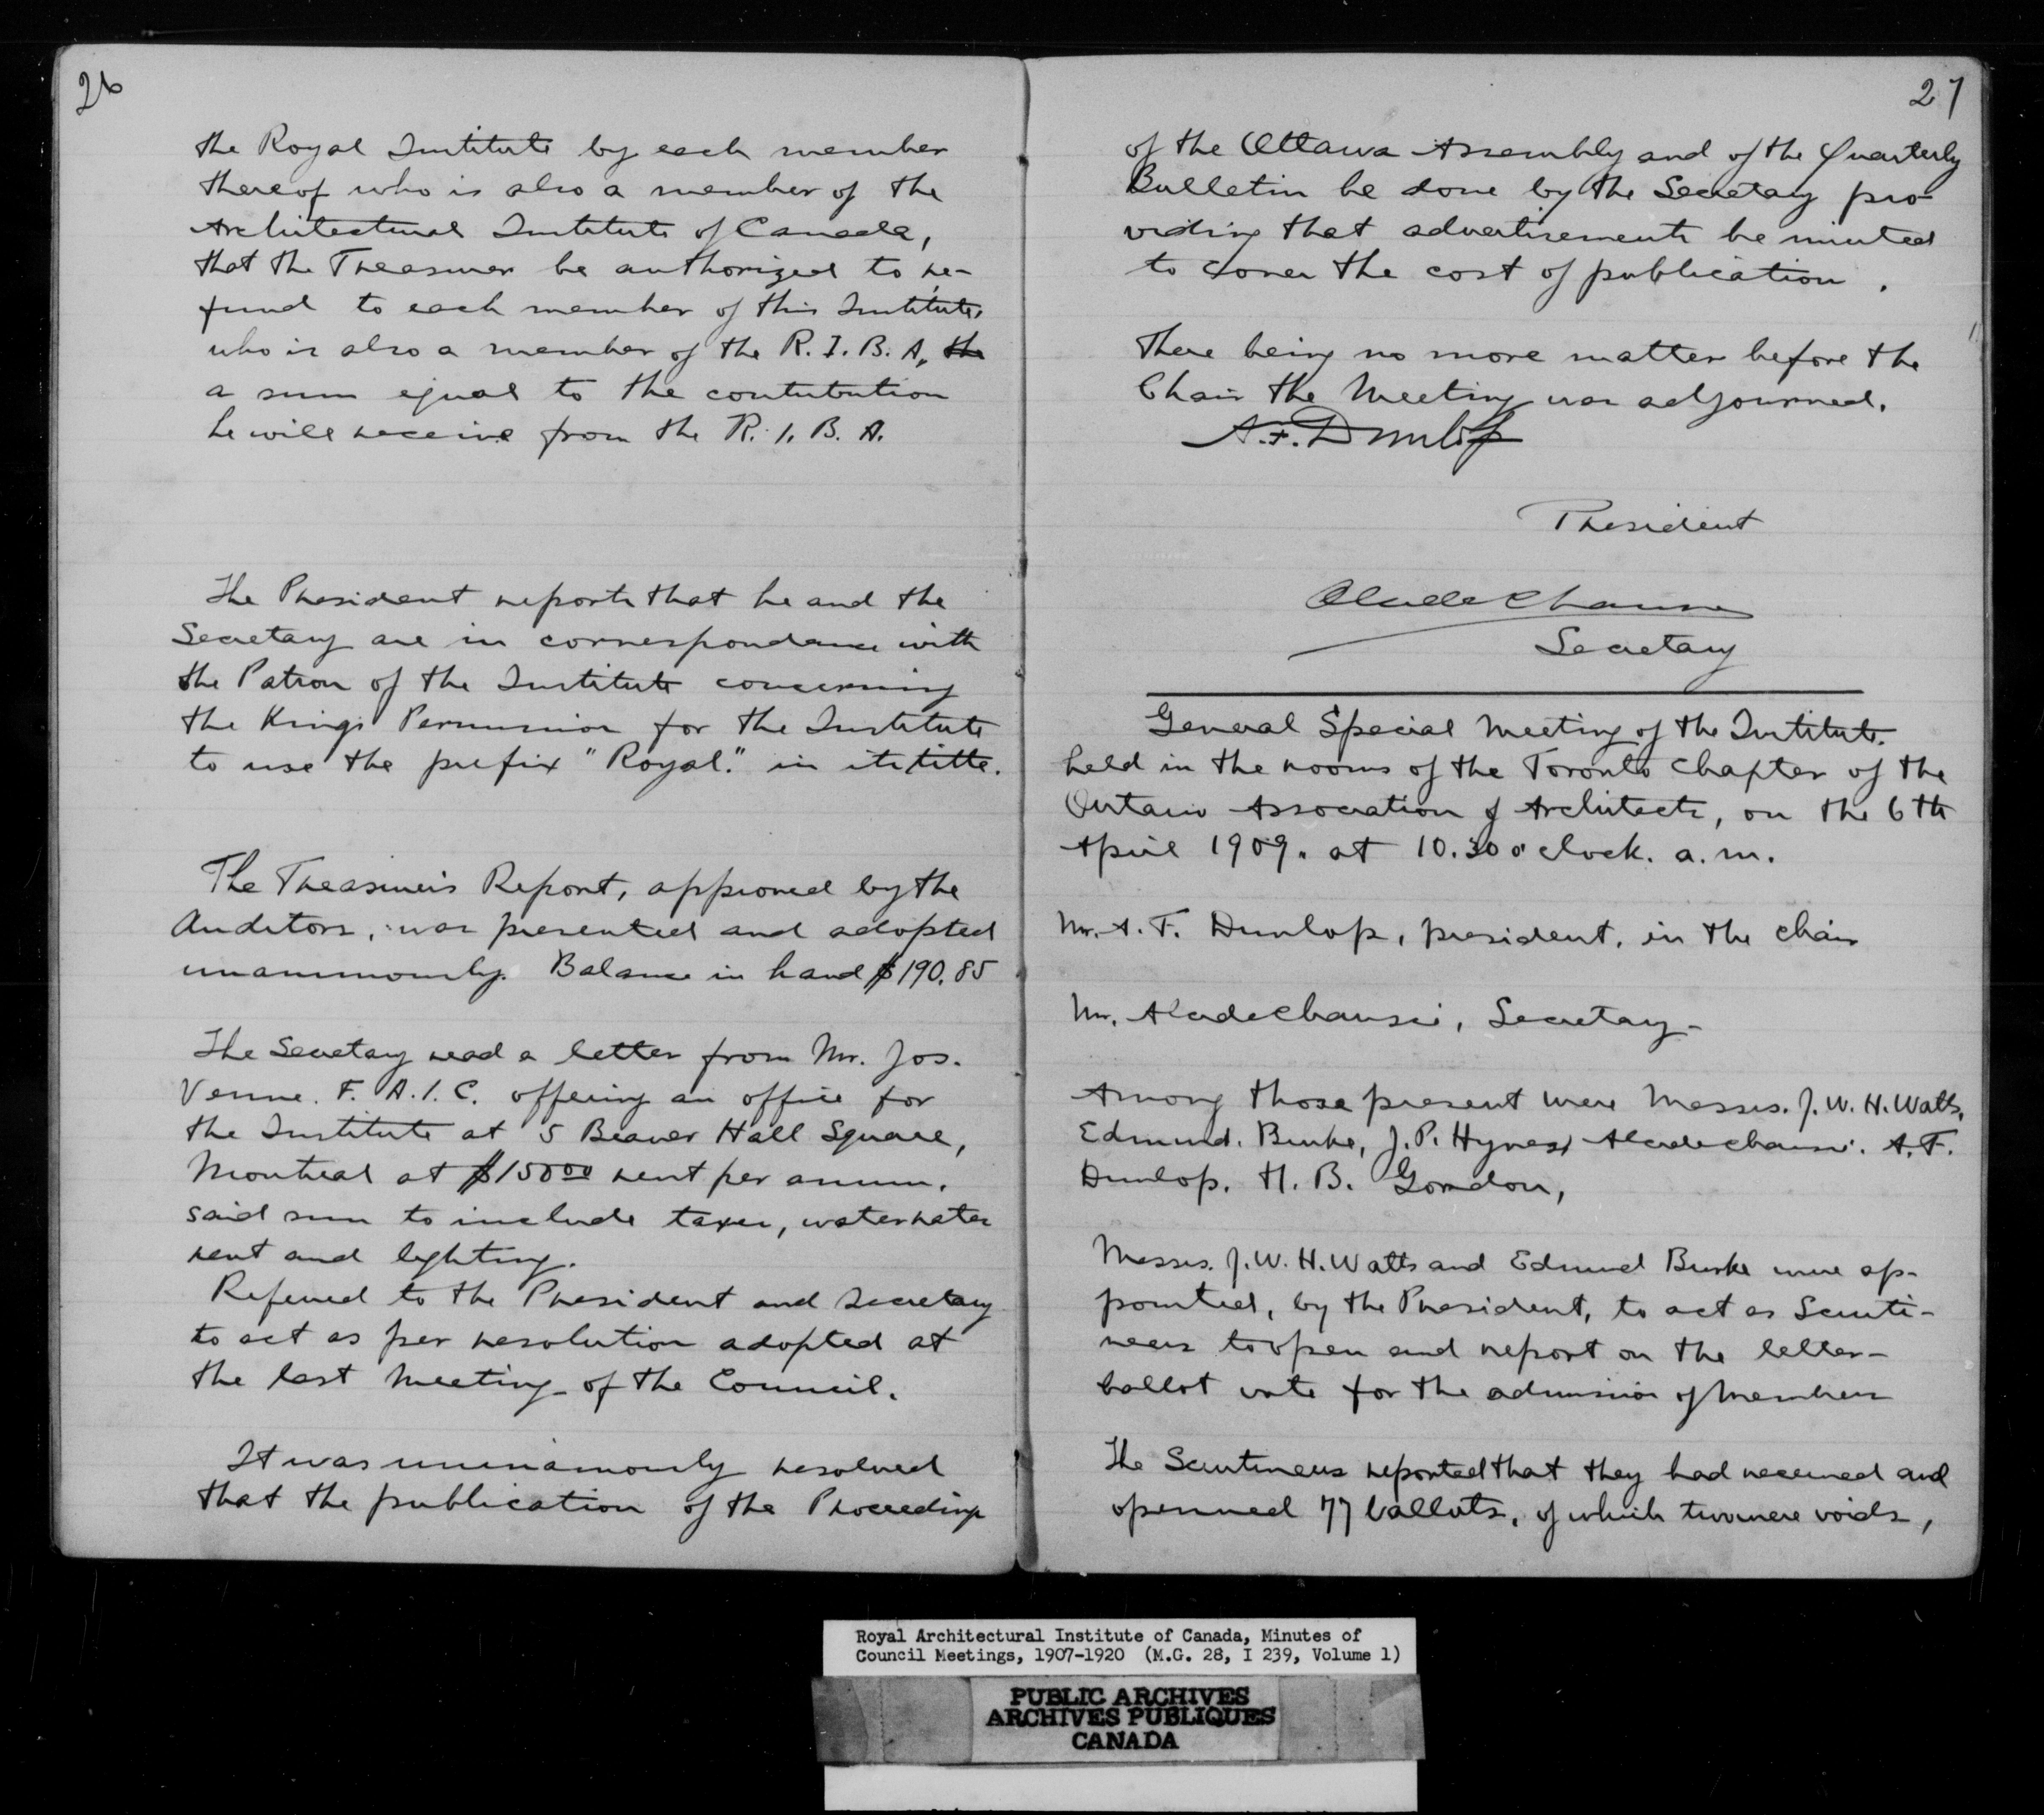 26
the Royal Institute by each member
thereof who is also a member of the
Architectural Institute of Canada,
that the Treasurer be authorized to re-
fund to each member of this Institute,
who is also a member of the R. I. B. A, the
a sum equal to the contribution
he will receive from the R. I. B. A.
The President reports that he and the
Secretary are in correspondance with
the Patron of the Institute concerning
the Kings Permission for the Institute
to use the prefix "Royal." in its title.
The Treasurer's Report, approved by the
Auditors, was presented and adopted
unanimously. Balance in hand $190.85
The Secretary read a letter from Mr. Jos.
Venne. F. A. I. C. offering an office for
the Institute at 5 Beaver Hall Square,
Montreal at $150 00 rent per annum.
said sum to include taxes, water rates
rent and lighting.
Referred to the President and Secretary
to act as per resolution adopted at
the last Meeting of the Council.
It was uninamously resolved
that the publication of the Proceedings
27
of the Ottawa Assembly and of the Quarterly
Bulletin be done by the Secretary pro-
viding that advertisements be invited
to cover the cost of publication.
There being no more matter before the
Chair the Meeting was adjourned.
A. F. Dunlop
President
Alcide Chaussé
Secretary
General Special Meeting of the Institute.
held in the rooms of the Toronto Chapter of the
Ontario Association of Architects, on the 6th
April 1909. at 10.30 o'clock. a.m.
Mr. A. F. Dunlop, president, in the chair
Mr. Alcide Chaussé, Secretary-
Among those present were Messrs. J. W. H. Watts,
Edmund. Burke, J. P. Hynes, Alcide Chaussé. A. F.
Dunlop. H. B. Gordon,
Messrs. J. W. H. Watts and Edmund Burke were ap-
pointed, by the President, to act as Scruti-
neers to open and report on the letter-
ballot vote for the admission of Members
The Scrutineers reported that they had received and
openned 77 ballots, of which two were voids,
Royal Architectural Institute of Canada, Minutes of
Council Meetings, 1907-1920 (M.G. 28, I 239, Volume 1)
PUBLIC ARCHIVES
ARCHIVES PUBLIQUES
CANADA